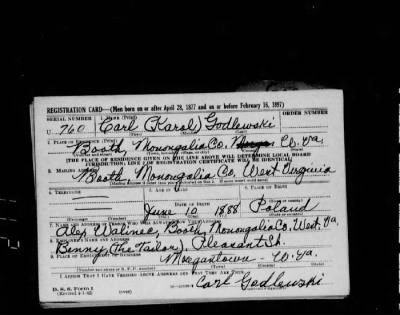 REGISTRATION CARD—(Men born on or after April 28, 1877 and on or before February 16, 1897)
SERIAL NUMBER 1. NAME (Print) ORDER NUMBER
U 760 Carl (Karol) Godlewski
2. PLACE OF RESIDENCE (Print)
Booth, Monongalia Co, W. Va.
[THE PLACE OF RESIDENCE GIVEN ON THE LINE ABOVE WILL DETERMINE LOCAL BOARD
JURISDICTION; LINE 2 OF REGISTRATION CERTIFICATE WILL BE IDENTICAL]
3. MAILING ADDRESS
Booth, Monongalia Co, West Virginia
4. TELEPHONE 6. PLACE OF BIRTH
DATE OF BIRTH
June 10 1888 Poland
7. NAME AND ADDRESS OF PERSON WHO WILL ALWAYS KNOW YOUR ADDRESS
Alex Walinec, Booth, Monongalia Co, West. Va.
8. EMPLOYER'S NAME AND ADDRESS
Benny (The Tailor) Pleasant St.
9. PLACE OF EMPLOYMENT OR BUSINESS
Morgantown - W. Va.
I AFFIRM THAT I HAVE VERIFIED ABOVE ANSWERS AND THAT THEY ARE TRUE.
D. S. S. Form 1
(Revised 4-1-42) (over)
Carl Godlewski